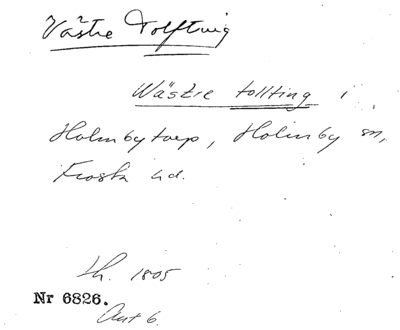 Västre Tolfting
Wästre tollting i
Holmbytorp, Holmby sn,
Frosta hd.
Lh. 1805
Nr 6826.
Akt 6.